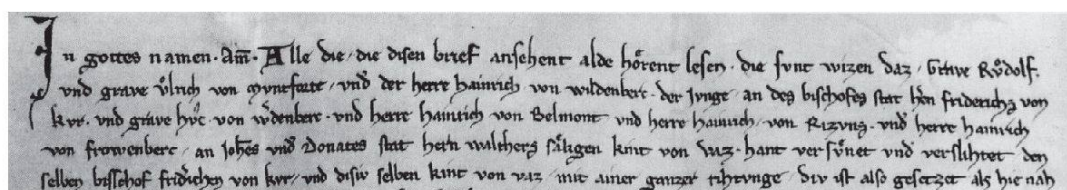 In gottes namen · Am̄ · Alle die / die disen brief ansehent alde hoͤrent lesen · die sv̂nt wizen daz / Grave Rv̊dolf ·
vnd grave v̊lrich von Mvntfort / vnd̄ der herre Hainrich · von wildenberc · der Jvnge / an des bischofes stat h̄en friderichs von
kvr · vnd grave hvc · von w̄denberc · vnd herre hainrich von Belmont vnd herre hainrich / von Rizvns · vnd̄ herre hainrich
von frowenberc / an Joh̄es vnd̄ Donates stat hern walthers sæ̂ligen kint von vaz · hant versv̂net vnd̄ verslihtet den
selben bisschof frid̄ichen von kvr / vnd disiv selben kint von vaz / mit ainer ganzer rihtvnge / div ist also gesetzet als hie nah